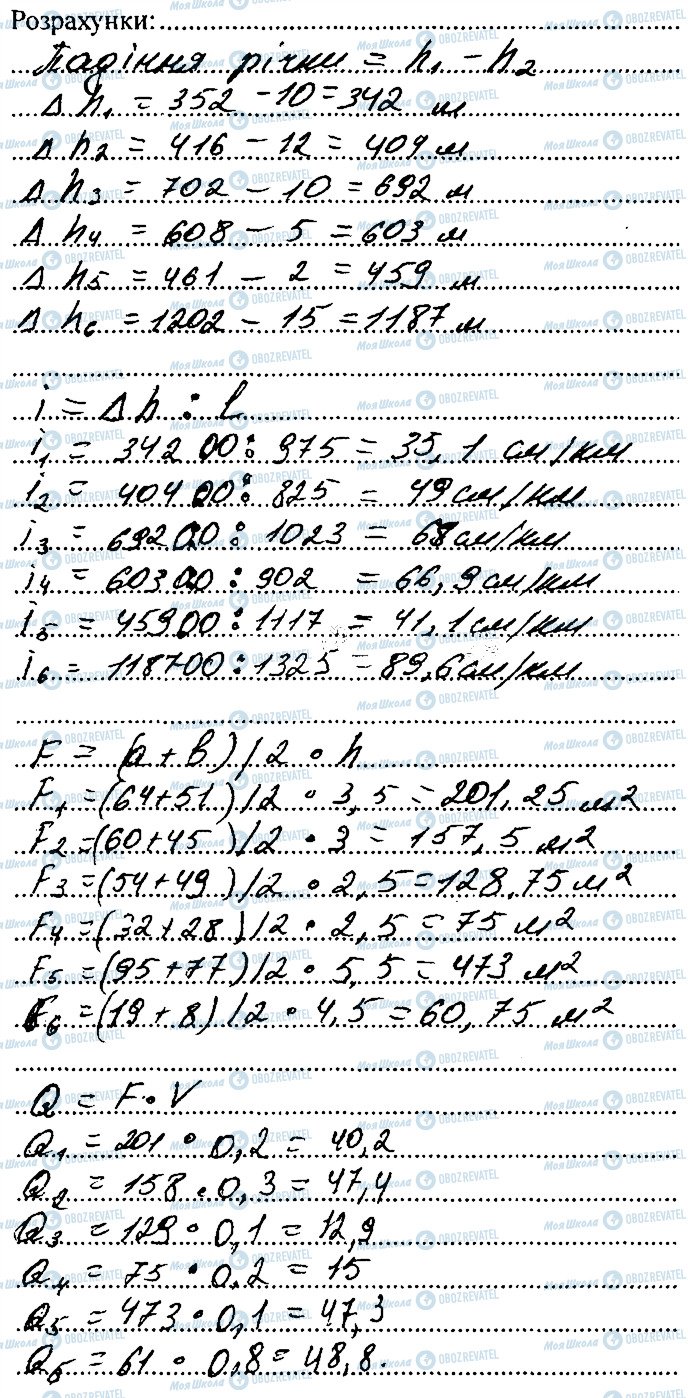 Розрахунки:
Падіння річки = h₁ − h₂
Δ h₁ = 352 − 10 = 342 м
Δ h₂ = 416 − 12 = 404 м
Δ h₃ = 702 − 10 = 692 м
Δ h₄ = 608 − 5 = 603 м
Δ h₅ = 461 − 2 = 459 м
Δ h₆ = 1202 − 15 = 1187 м
i = Δ h : L
i₁ = 34200 : 975 = 35,1 см/км
i₂ = 40400 : 825 = 49 см/км
i₃ = 69200 : 1023 = 68 см/км
i₄ = 60300 : 902 = 66,9 см/км
i₅ = 45900 : 1117 = 41,1 см/км
i₆ = 118700 : 1325 = 89,6 см/км
F = (a + b) / 2 • h
F₁ = (64 + 51) / 2 • 3,5 = 201,25 м²
F₂ = (60 + 45) / 2 • 3 = 157,5 м²
F₃ = (54 + 49) / 2 • 2,5 = 128,75 м²
F₄ = (32 + 28) / 2 • 2,5 = 75 м²
F₅ = (95 + 77) / 2 • 5,5 = 473 м²
F₆ = (19 + 8) / 2 • 4,5 = 60,75 м²
Q = F • V
Q₁ = 201 • 0,2 = 40,2
Q₂ = 158 • 0,3 = 47,4
Q₃ = 129 • 0,1 = 12,9
Q₄ = 75 • 0,2 = 15
Q₅ = 473 • 0,1 = 47,3
Q₆ = 61 • 0,8 = 48,8.